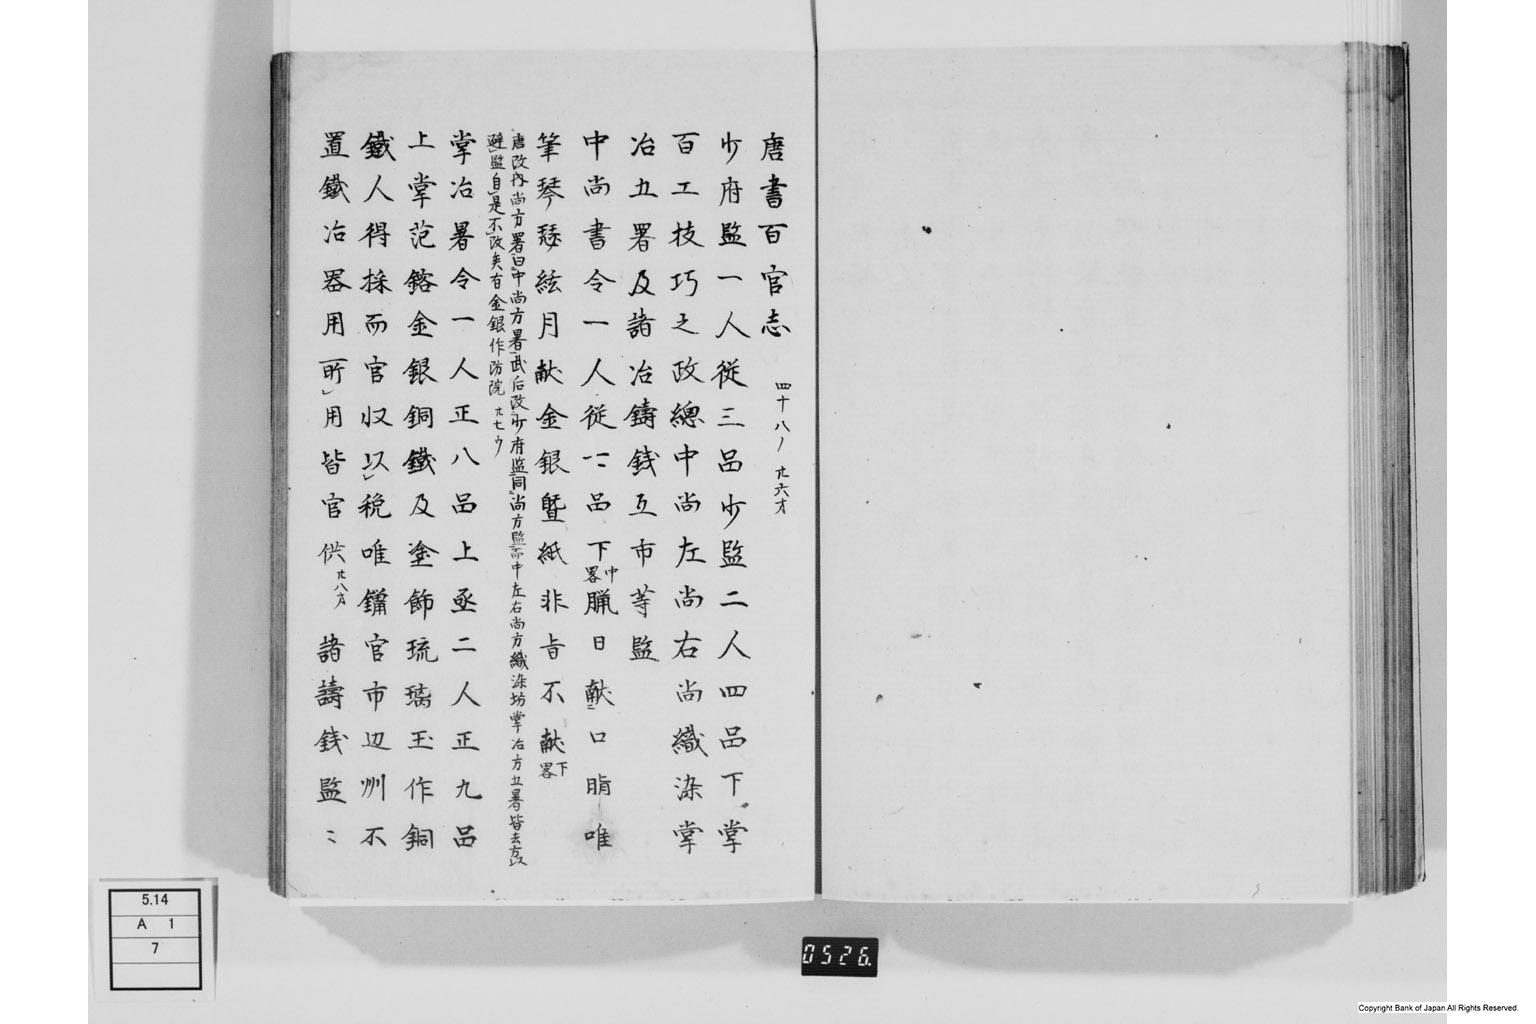 唐書百官志 四十八ノ廿六才
少府監一人従三品少監二人四品下掌
百工技巧之政總中尚左尚右尚織染掌
冶五署及諸冶鑄銭互市等監
中尚書令一人従一ニ品下中畧臘日献ニ口脂唯
筆琴瑟絃月献金銀曁紙非旨不献下畧
唐改内尚方署曰中尚方署武后改少府監同尚方監而中左右尚方織染坊掌冶方五署皆去方以
避監自是不改矣有金銀作坊院 廿七ウ
掌冶署令一人正八品上丞二人正九品
上掌范鎔金銀銅鐵及塗飾琉璃玉作銅
鐵人得採而官収以税唯鑞官市辺州不
置鐵冶器用所用皆官供廿八才 諸鑄銭監ニ
5.14
A 1
7
0526.
Copyright Bank of Japan All Rights Reserved.